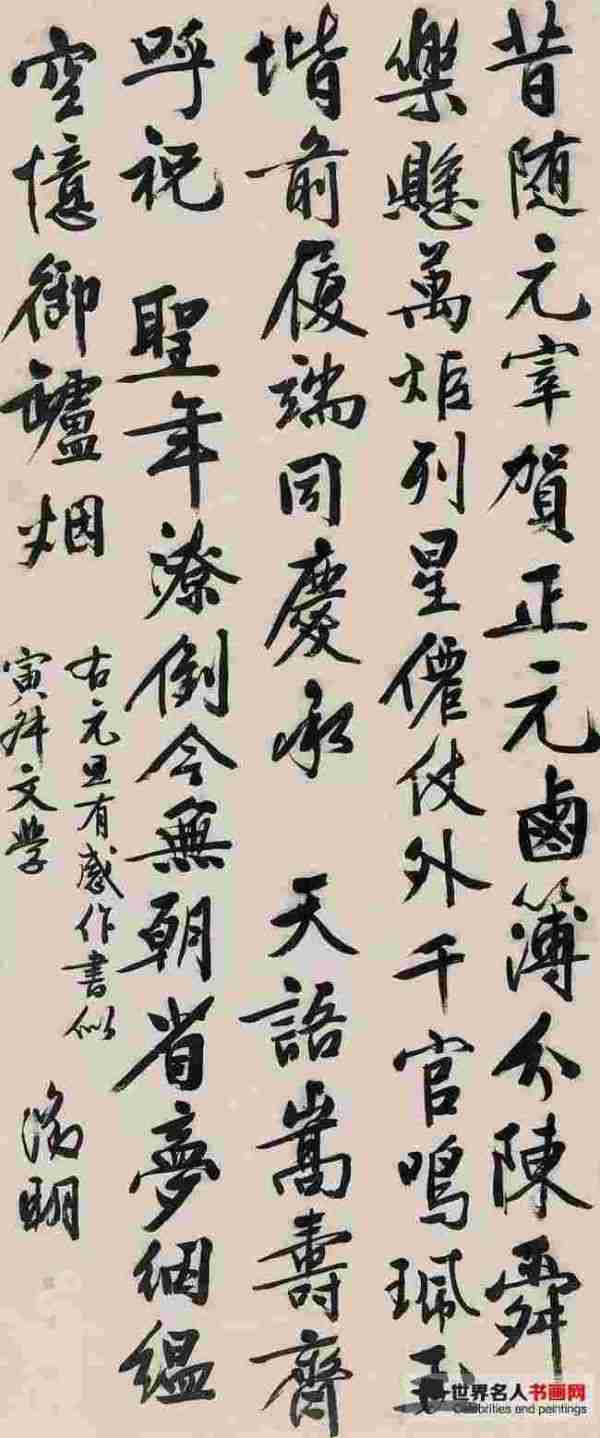 昔随元宰賀正元鹵簿分陳舜
樂懸萬炬列星僊仗外千官鳴珮玉
堦前履端同慶承 天語嵩壽齊
呼祝 聖年潦倒今無朝省夢絪縕
空憶御罏烟
右元旦有感作書似
寅拜文學
徵明
世界名人书画网
Celebrities and paintings